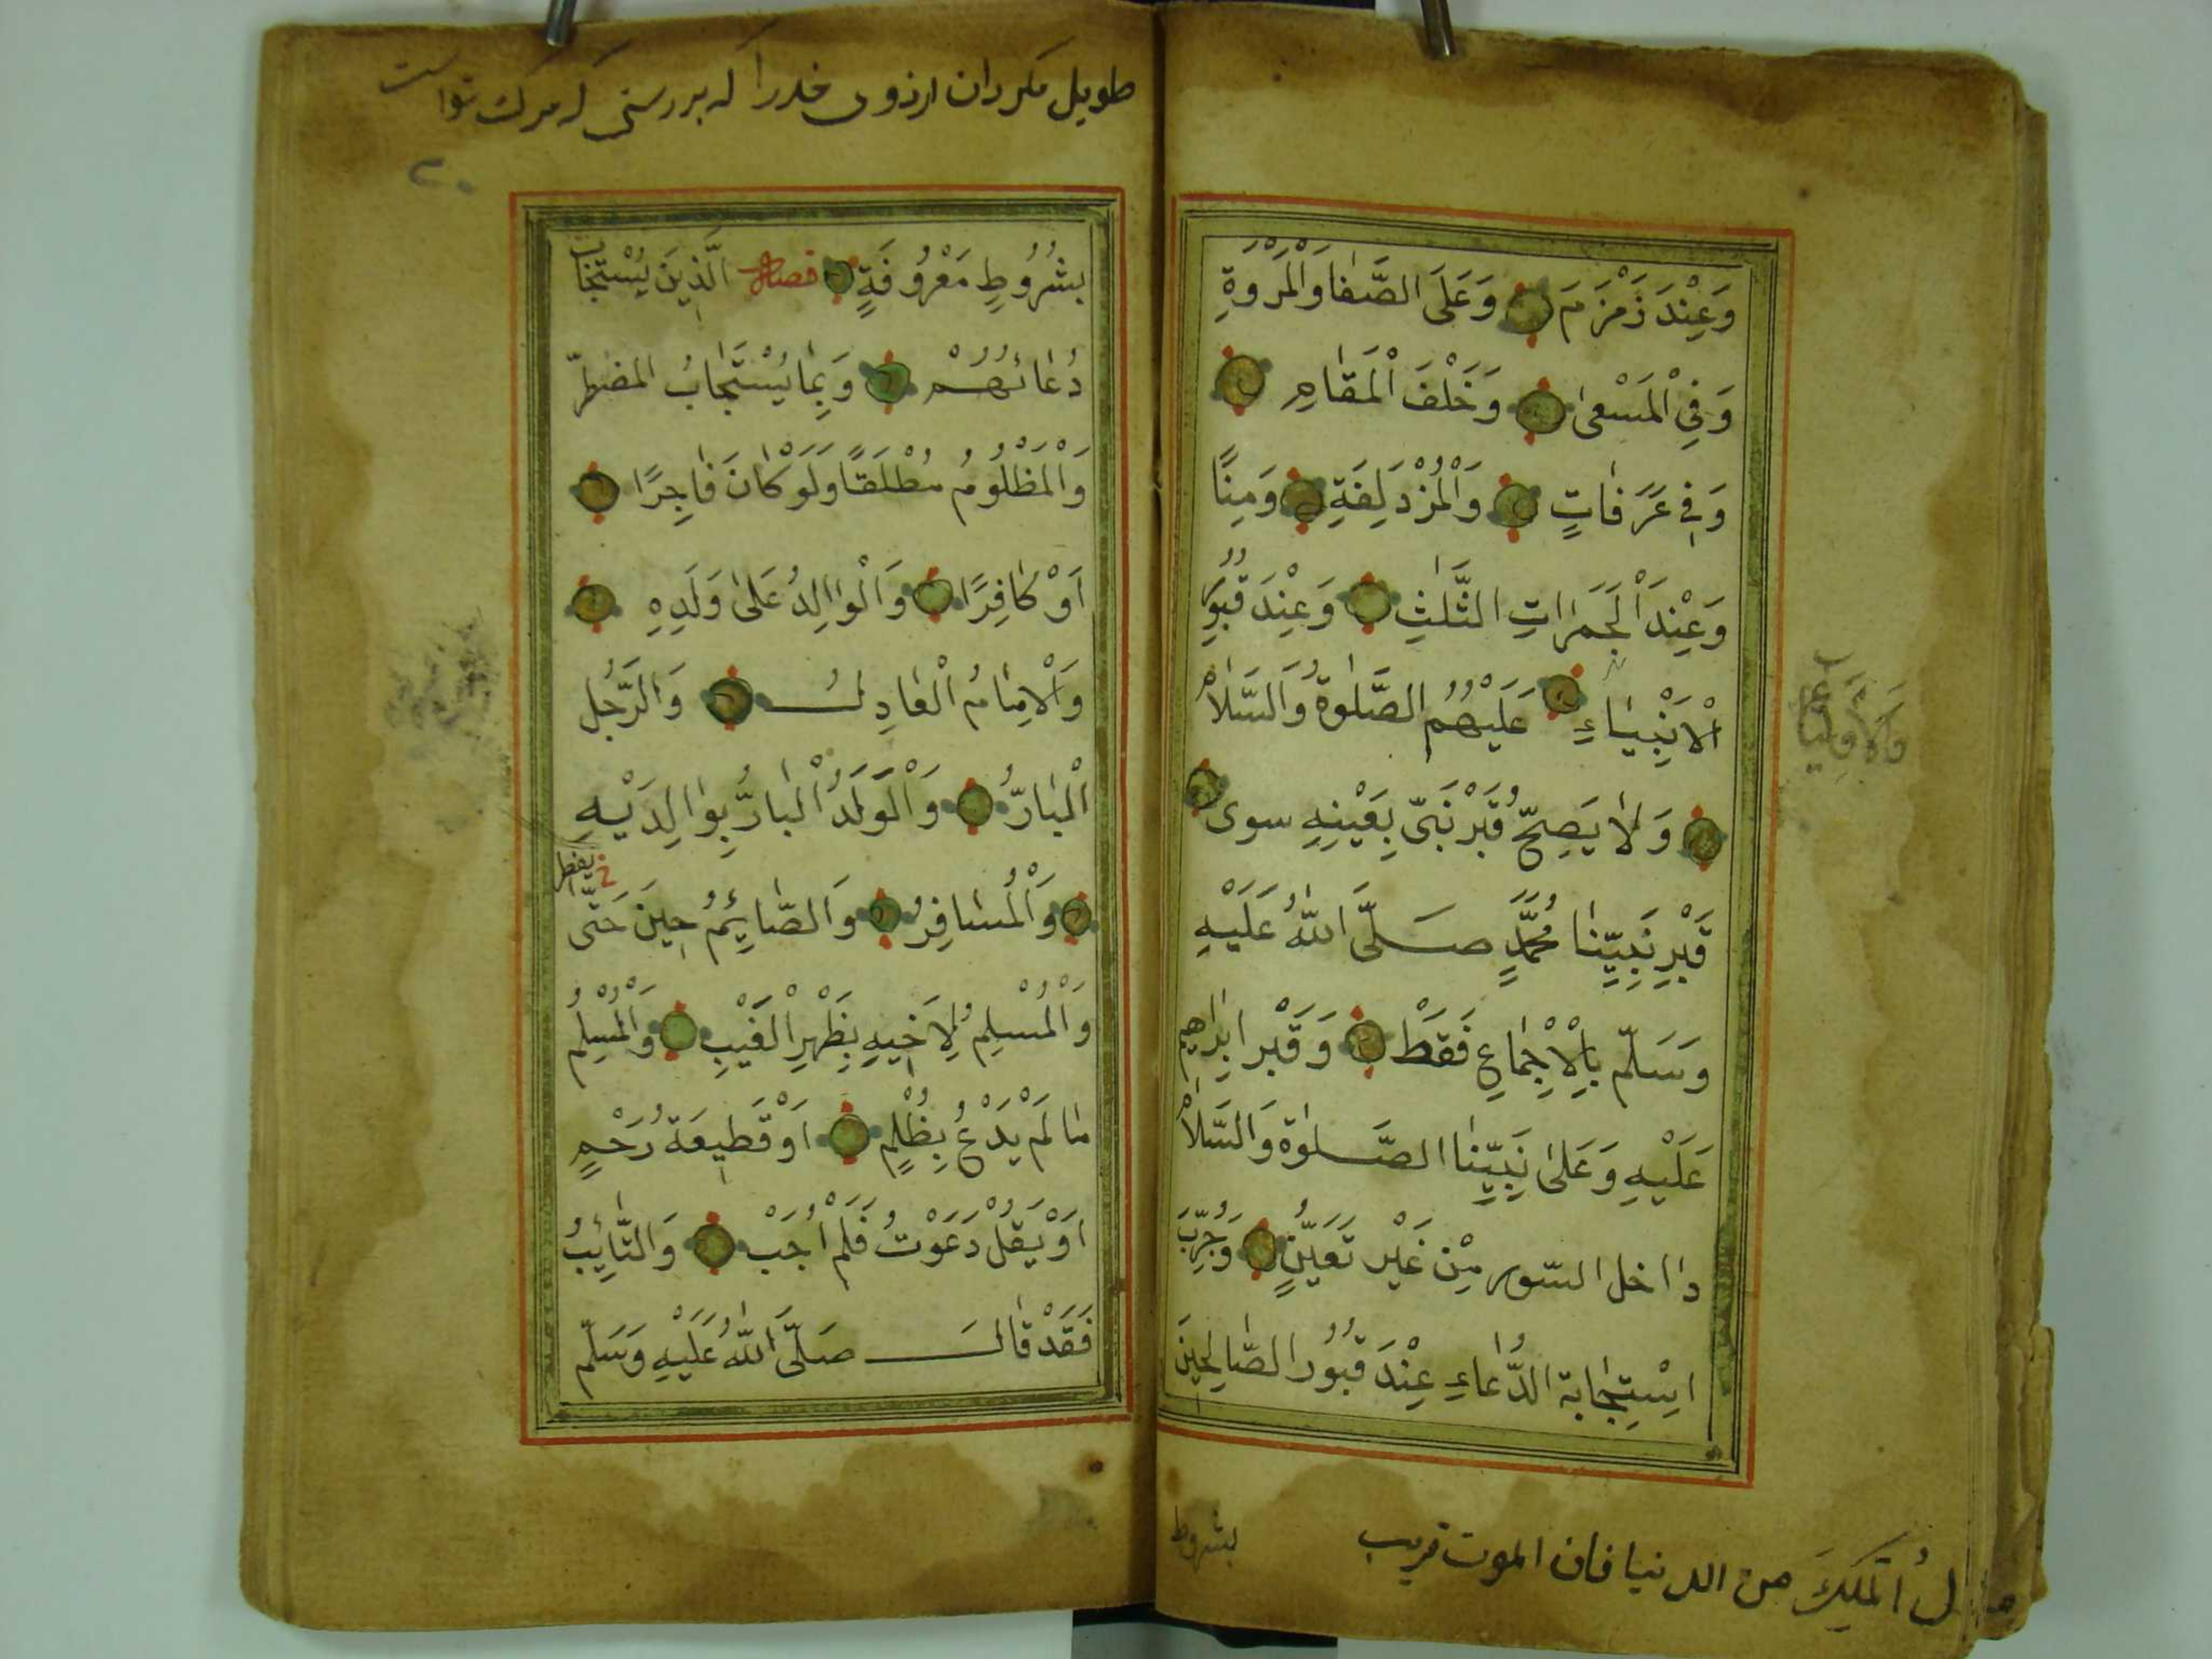 وَعِنْدَ زَمْزَمَ وَعَلَى الصَّفَا وَالْمَرْوَةِ
وَفِي الْمَسْعٰى وَخَلْفَ الْمَقَامِ
وَفِي عَرَفَاتٍ وَالْمُزْدَلِفَةِ وَمِنًا
وَعِنْدَ الْجَمَرَاتِ الثَّلٰثِ وَعِنْدَ قُبُوْرِ
الْاَنْبِيَاءِ عَلَيْهُمُ الصَّلٰوةُ وَالسَّلَامُ
وَلَا يَصِحُّ قَبْرُ نَبِىّ بِعَيْنِهِ سوى
قَبْرِ نَبِيِّنَا مُحَمَّدٍ صَلَّى اللّٰهُ عَلَيْهِ
وَسَلَّم بِالْاِجْمَاعِ فَقَطْ وَقَبْر اِبْرٰاهِيم
عَلَيْهِ وَعَلٰى نَبِيِّنَا الصَّلٰوة وَالسَّلَامُ
دااخل السّور مِنْ غَيْر تَعَيُّنٍ وَجُرِّبَ
اسْتِجَابة الدُّعَاءِ عِنْدَ قُبُوْر الصَّالِحِينَ
وَالْاَوْلِيَاء
بشروط
من الدنيا فان الموت قريب
طويل مكردان ارزوى خدرا كه بررستى كه مرك تواست
بِشُرُوْطٍ مَعْرُوْفَةٍ فصل اَلَّذِيْنَ يُسْتَجَابُ
دُعَائُهُمْ وَبِمَا يُسْتَجَابُ المضطرّ
وَالْمَظْلُوْمُ مُطْلَقًا وَلَوْ كَانَ فَاجِرًا
اَوْ كَافِرًا وَالْوَاالِدُ عَلٰى وَلَدِهِ
وَالْاِمَامُ الْعَادِلُ وَالرَّجُل
الْبَارُّ وَالْوَلَدُ الْبَارُّ بِوَالِدَيْهِ
وَالْمُسَافِرُ وَالصَّائِمُ حِينَ حَتّٰى
يفطر
وَالْمُسْلِمُ لِاَخِيهِ بِظَهْرِ الْغَيْبِ وَالْمُسْلِمُ
مَا لَمْ يَدْعُ بِظُلْمٍ اَوْ قَطِيعَة رَحْمٍ
اَوْ يَقُلْ دَعَوْتُ فَلَمْ اُجَبْ وَالتَّائِبُ
فَقَدْ قَالَ صَلَّى اللّٰهُ عَلَيْهِ وَسَلَّم